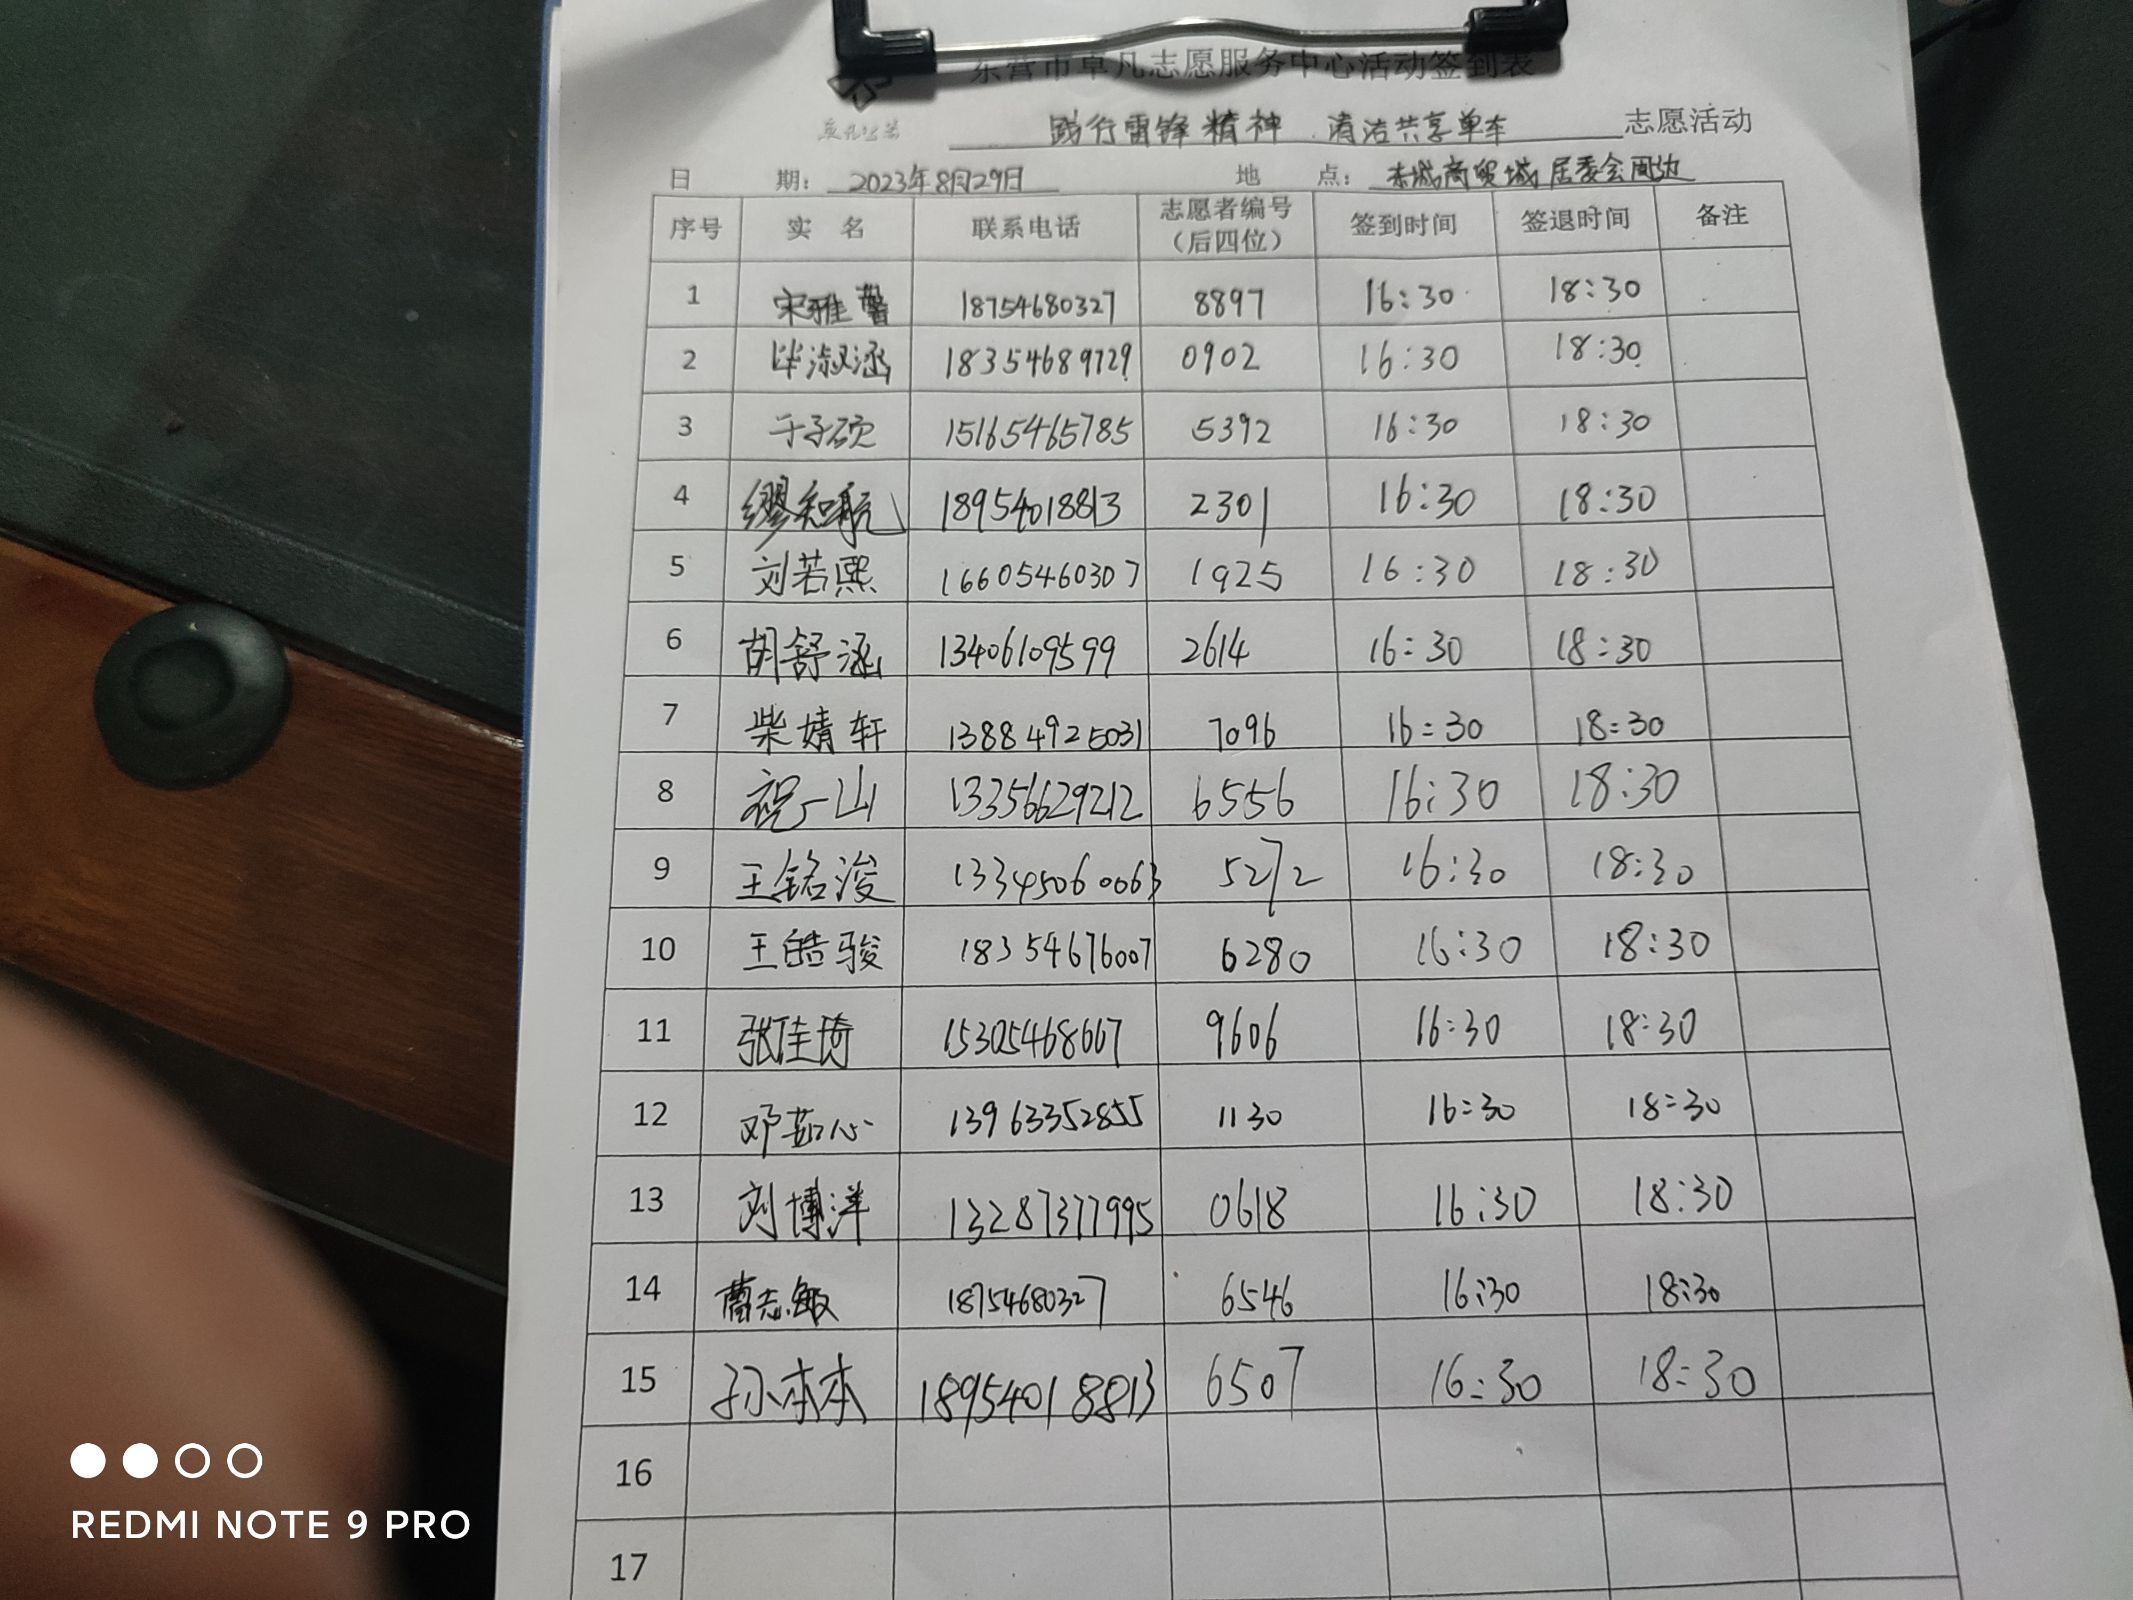 东营市卓凡志愿服务中心活动签到表
践行雷锋精神 清洁共享单车 志愿活动
日 期: 2023年8月29日 地 点: 东城商贸城居委会周边
序号 实 名 联系电话 志愿者编号(后四位) 签到时间 签退时间 备注
1 宋雅馨 18754680327 8897 16:30 18:30
2 毕淑涵 18354689729 0902 16:30 18:30
3 于子硕 15165465785 5392 16:30 18:30
4 缪和航 18954018813 2301 16:30 18:30
5 刘若熙 16605460307 1925 16:30 18:30
6 胡舒涵 13406109599 2614 16:30 18:30
7 柴婧轩 13884925031 7096 16:30 18:30
8 祝一山 13356629212 6556 16:30 18:30
9 王铭浚 13345060063 5272 16:30 18:30
10 王皓骏 18354676007 6280 16:30 18:30
11 张佳琦 15305468667 9606 16:30 18:30
12 邓茹心 13963352855 1130 16:30 18:30
13 刘博洋 13287377995 0618 16:30 18:30
14 曹志敏 18754680327 6546 16:30 18:30
15 孙本本 18954018813 6507 16:30 18:30
16
17
REDMI NOTE 9 PRO